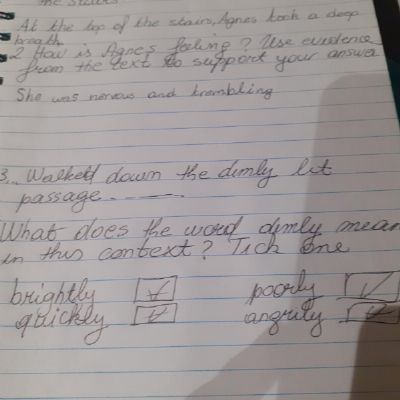 the stairs
At the top of the stairs, Agnes took a deep
breath
2 How is Agnes feeling? Use evidence
from the text to support your answer
She was nervous and trembling
3. Walked down the dimly lit
passage
What does the word dimly mean
in this context? Tick one
brightly poorly
quickly angrily